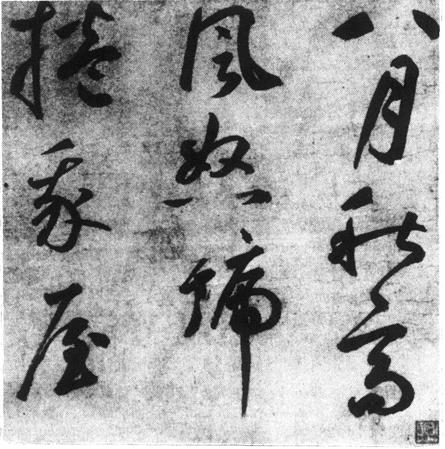 八月秋高
風怒號
捲我屋